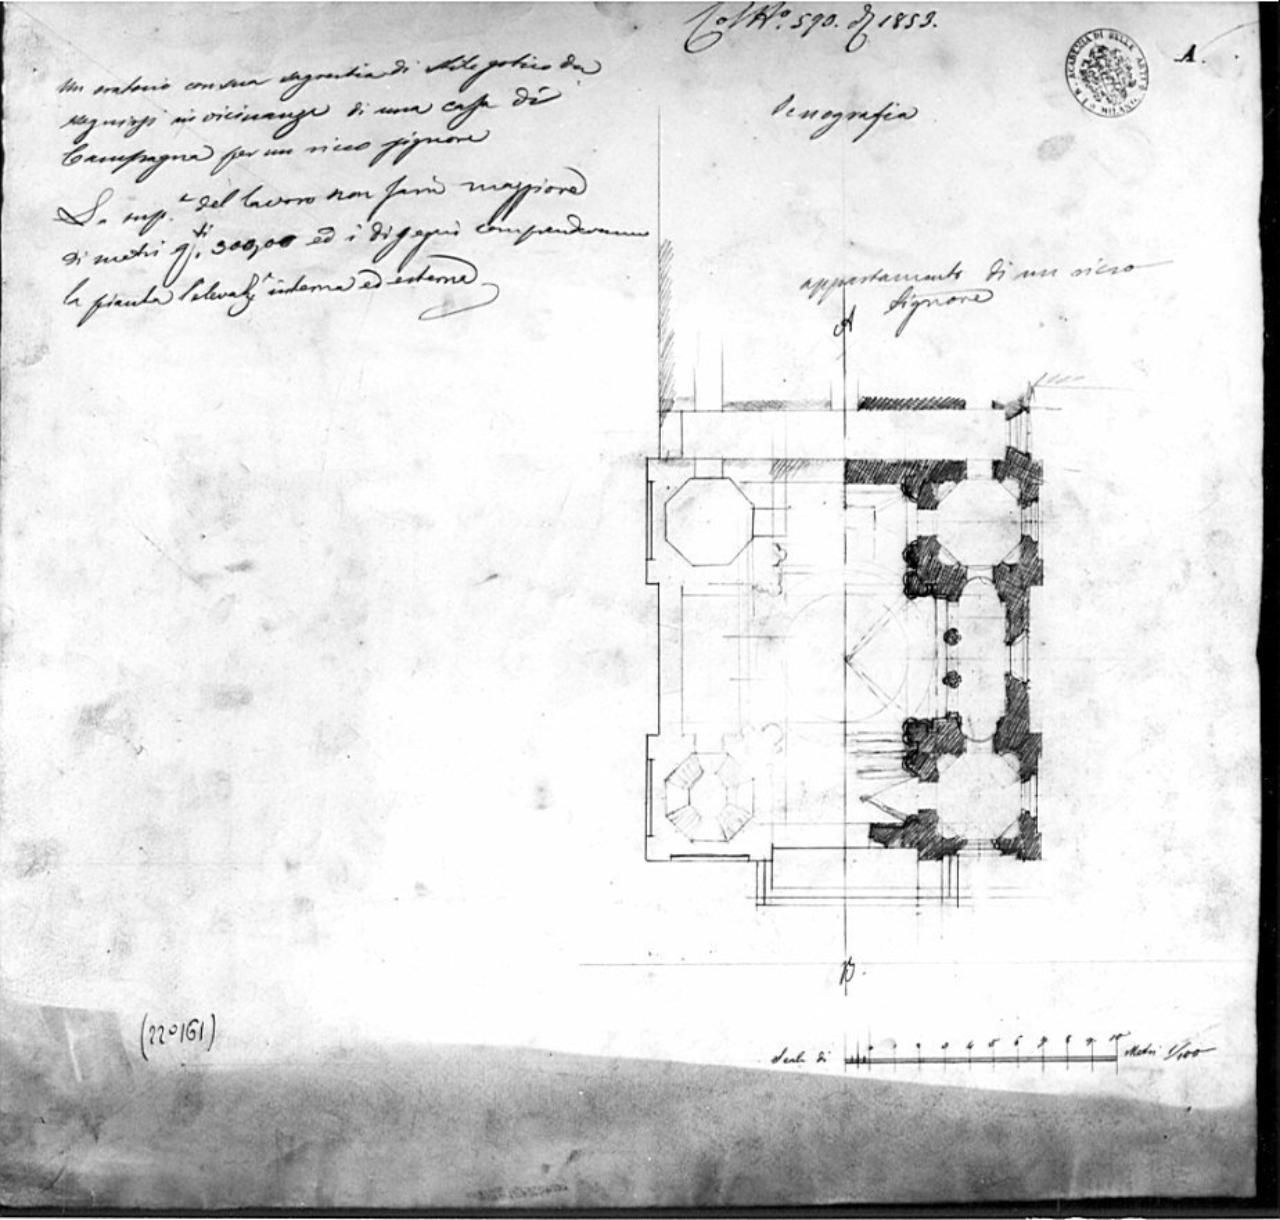 Col N.º 590. di 1853.
A.
I. R. ACCADEMIA DI BELLE ARTI MILANO
un oratorio con sua sagrestia di stile gotico da
eseguirsi in vicinanze di una casa di
Campagna per un ricco signore
La sup.e del lavoro non sarà maggiore
di metri q.ti 300,00 ed i disegni comprenderanno
la pianta l'elevatz.e interna ed esterna
Icnografia
appartamento di un ricco
Signore
A
B.
(22°161)
Scala di
0 1 2 3 4 5 6 7 8 9 10
Metri 1/100